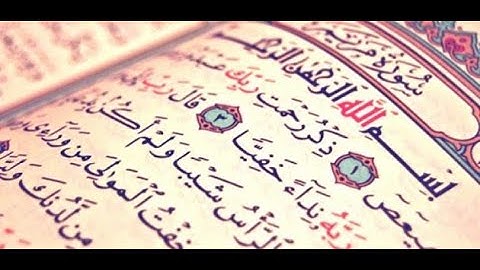 سُورَةُ مَرْيَمَ
بِسْمِ اللَّهِ الرَّحْمَٰنِ الرَّحِيمِ
١ ذِكْرُ رَحْمَتِ رَبِّكَ
رَبَّهُ نِدَآءً خَفِيًّا ٣ قَالَ رَبِّ
ٱلرَّأْسُ شَيْبًا وَلَمْ أَكُنۢ
خِفْتُ ٱلْمَوَٰلِىَ مِن وَرَآءِى
مِن لَّدُنكَ وَلِيًّا